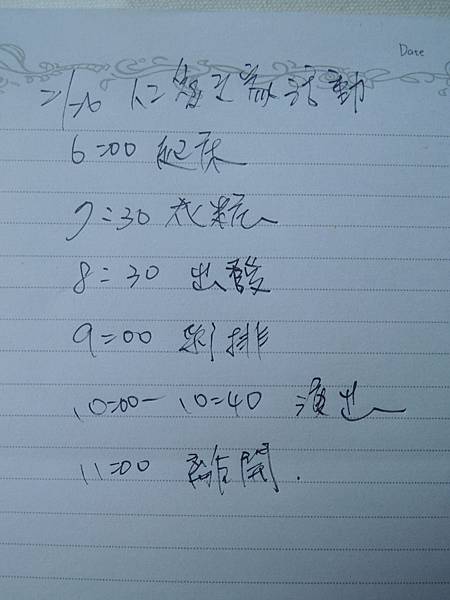 Date
仁愛之家活動
6:00 起床
7:30 化粧
8:30 出發
9:00 彩排
10:00-10:40 演出
11:00 離開.